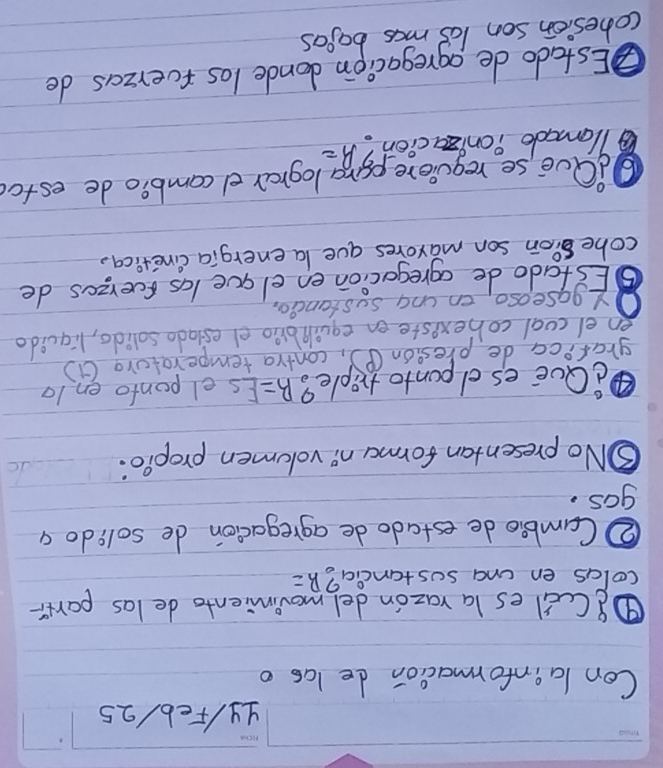 11/Feb/25
Con la información de las o
① ¿Cuál es la razón del movimiento de las partí-
colas en una sustancia? R=
② Cambio de estado de agregación de solido a
gas.
③ No presentan forma ni volumen propio.
④ ¿Qué es el punto triple? R= Es el punto en la
grafica de presión (P), contra temperatura (T)
en el cual cohexiste en equilibrio el estado solido, liquido
Y gaseoso en una sustancia.
⑤ Estado de agregación en el que las fuerzas de
cohesión son mayores que la energía cinética.
⑥ ¿Qué se requiere para lograr el cambio de estad
llamado ionización? R=
⑦ Estado de agregación donde las fuerzas de
cohesión son las mas bajas